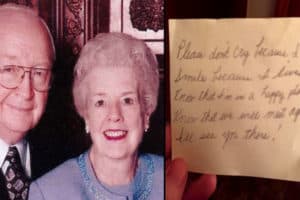 Please don't cry because I
Smile because I
Know that I'm in a happy
Know that we will meet
see you there.